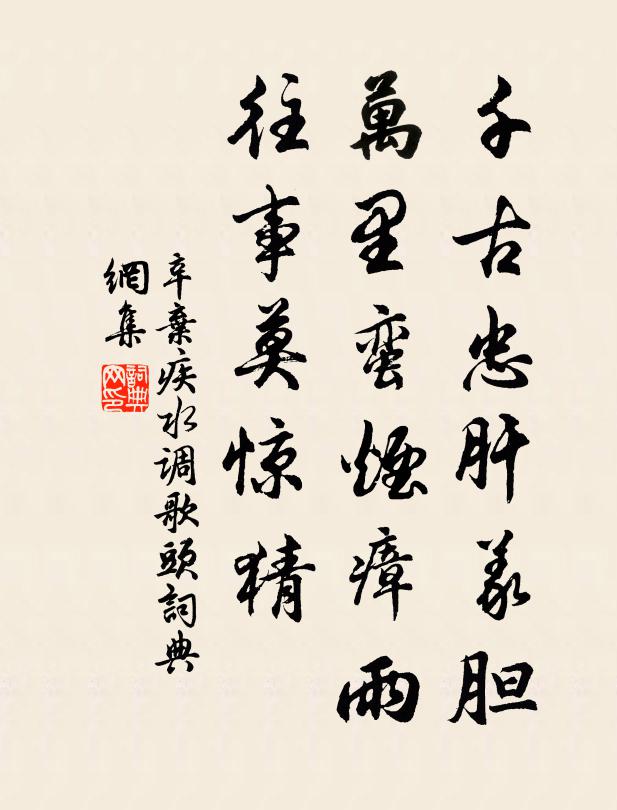 千古忠肝义胆
萬里蛮煙瘴雨
往事莫惊猜
辛棄疾水调歌頭詞典
網集
詞典网印